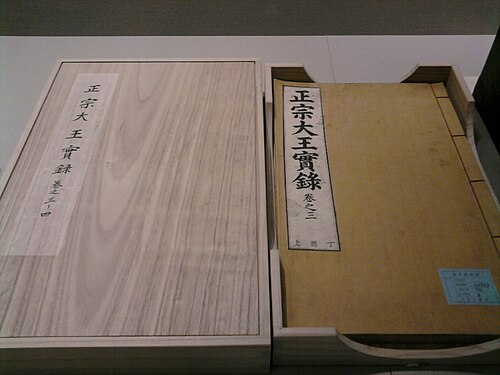 正宗大王實錄 卷之三-四
正宗大王實錄 卷之三
丁酉上